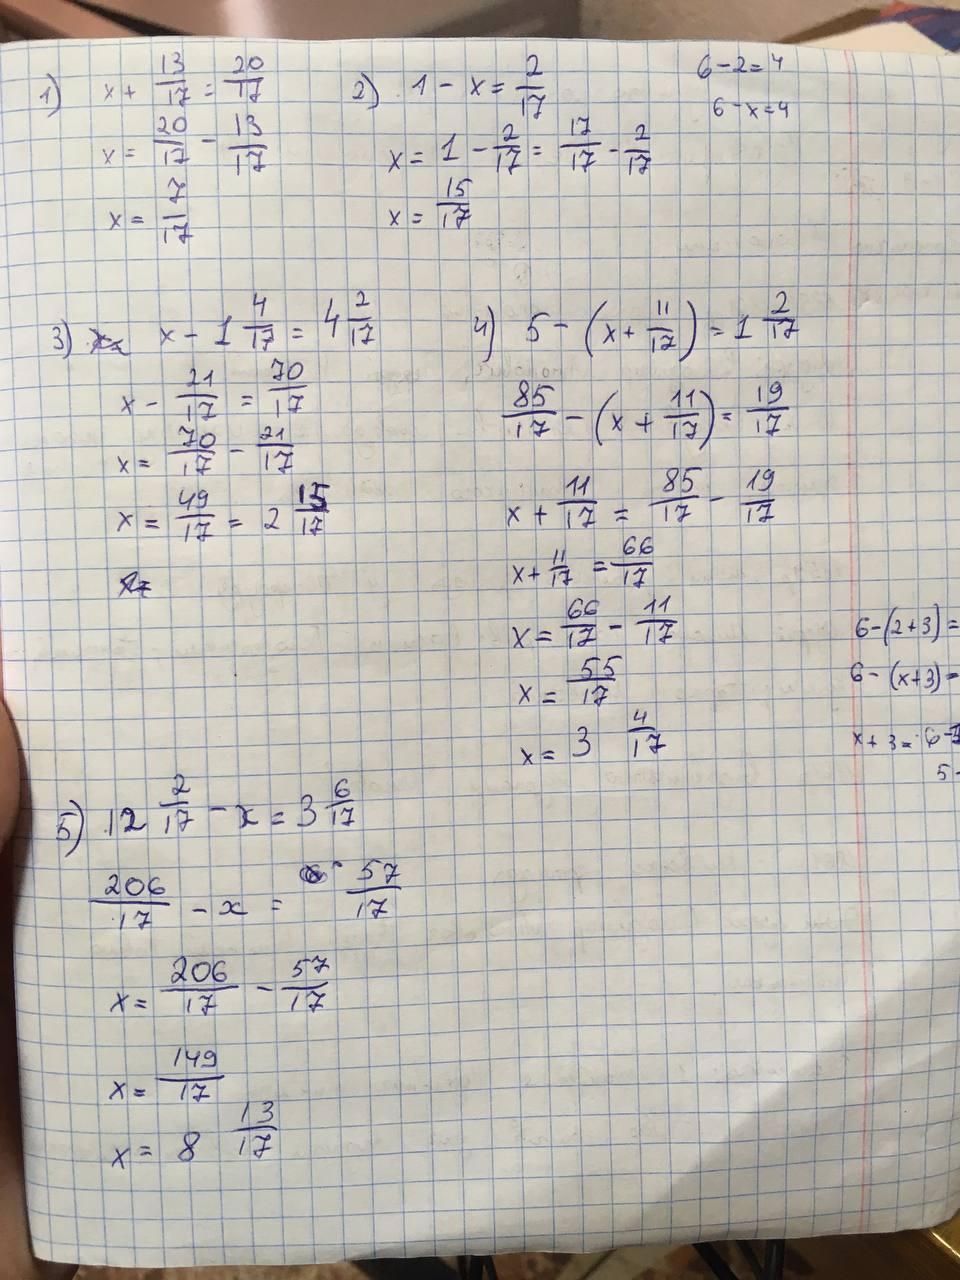 1) x + 13/17 = 20/17
x = 20/17 - 13/17
x = 7/17
2) 1 - x = 2/17
x = 1 - 2/17 = 17/17 - 2/17
x = 15/17
6 - 2 = 4
6 - x = 4
3) x - 1 4/17 = 4 2/17
x - 21/17 = 70/17
x = 70/17 - 21/17
x = 49/17 = 2 15/17
4) 5 - (x + 11/17) = 1 2/17
85/17 - (x + 11/17) = 19/17
x + 11/17 = 85/17 - 19/17
x + 11/17 = 66/17
x = 66/17 - 11/17
x = 55/17
x = 3 4/17
6 - (2 + 3) =
6 - (x + 3) =
x + 3 = 6 -
5 -
5) 12 2/17 - x = 3 6/17
206/17 - x = 57/17
x = 206/17 - 57/17
x = 149/17
x = 8 13/17